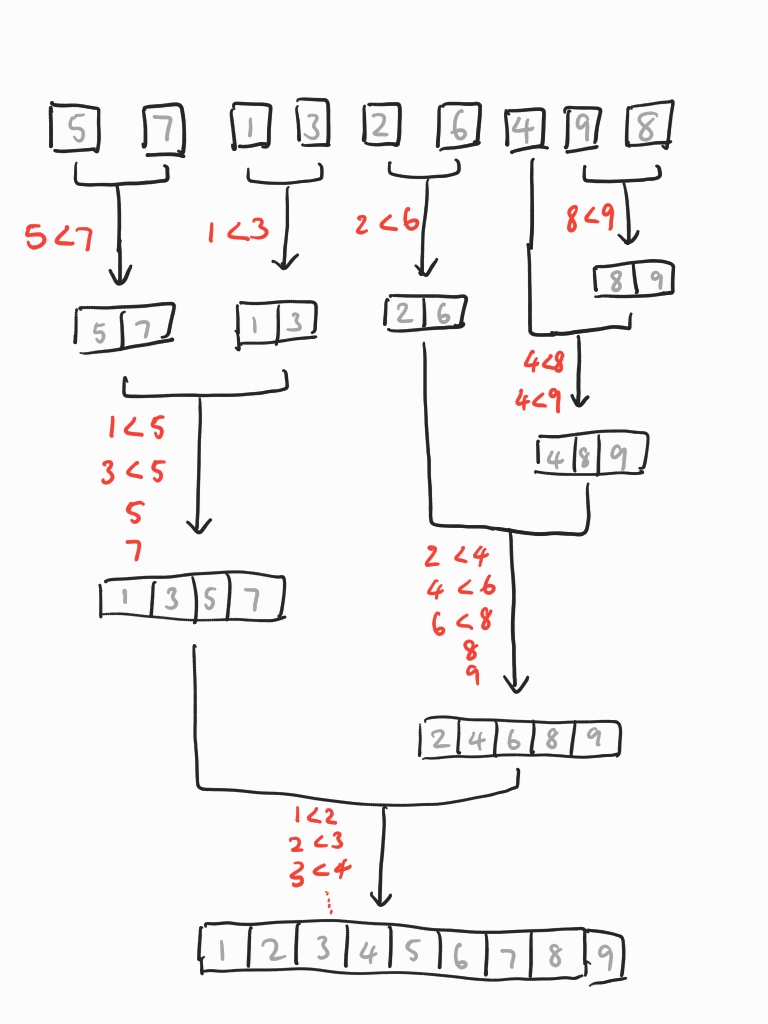 5 7 1 3 2 6 4 9 8
5<7
1<3
2<6
8<9
8 9
5 7
1 3
2 6
4<8
4<9
1<5
3<5
5
7
4 8 9
1 3 5 7
2<4
4<6
6<8
8
9
2 4 6 8 9
1<2
2<3
3<4
1 2 3 4 5 6 7 8 9